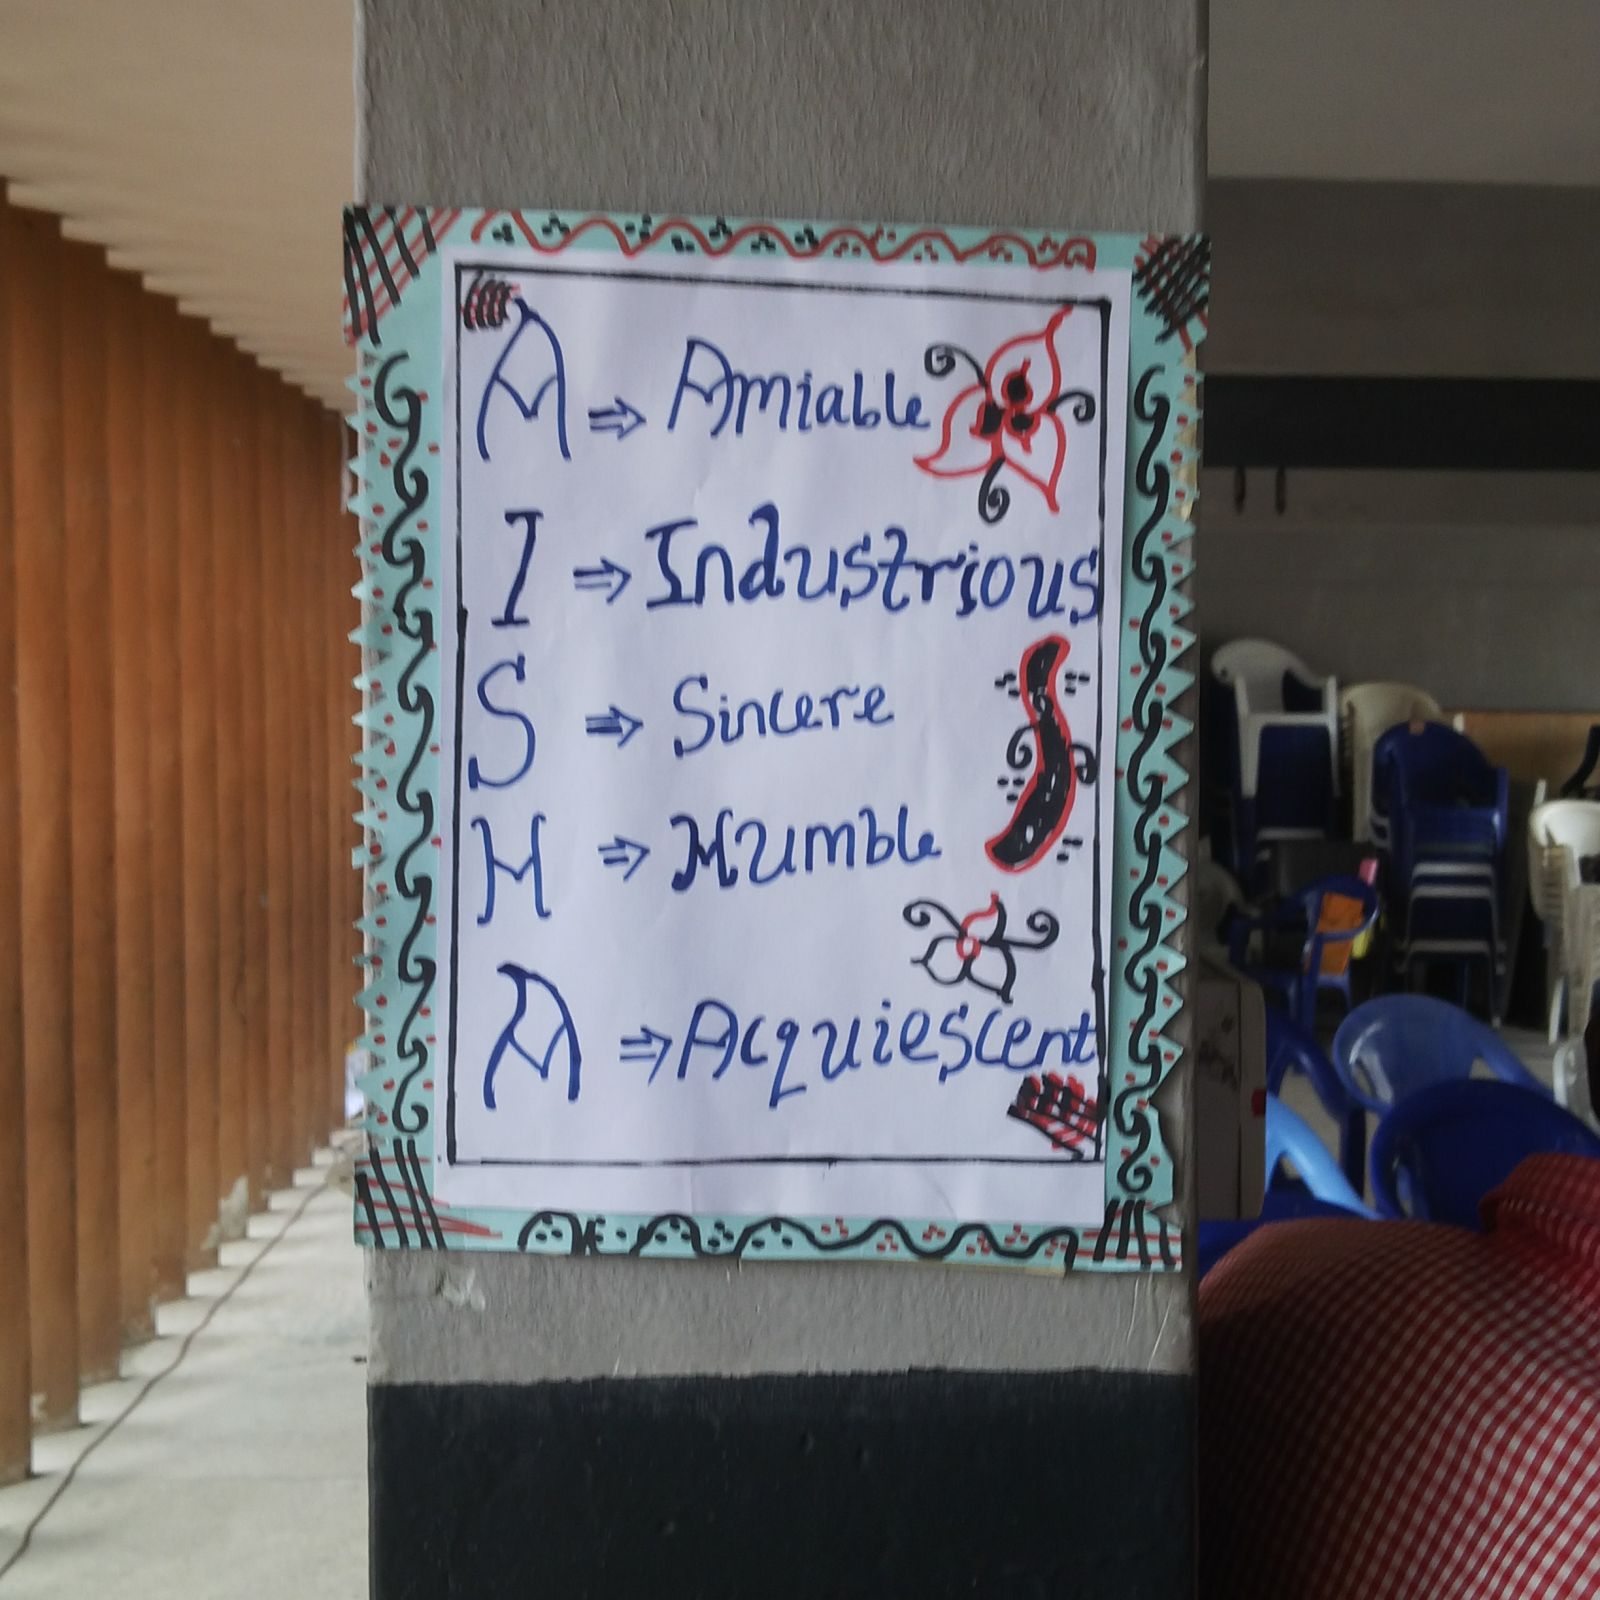 A ⇒ Amiable
I ⇒ Industrious
S ⇒ Sincere
H ⇒ Humble
A ⇒ Acquiescent